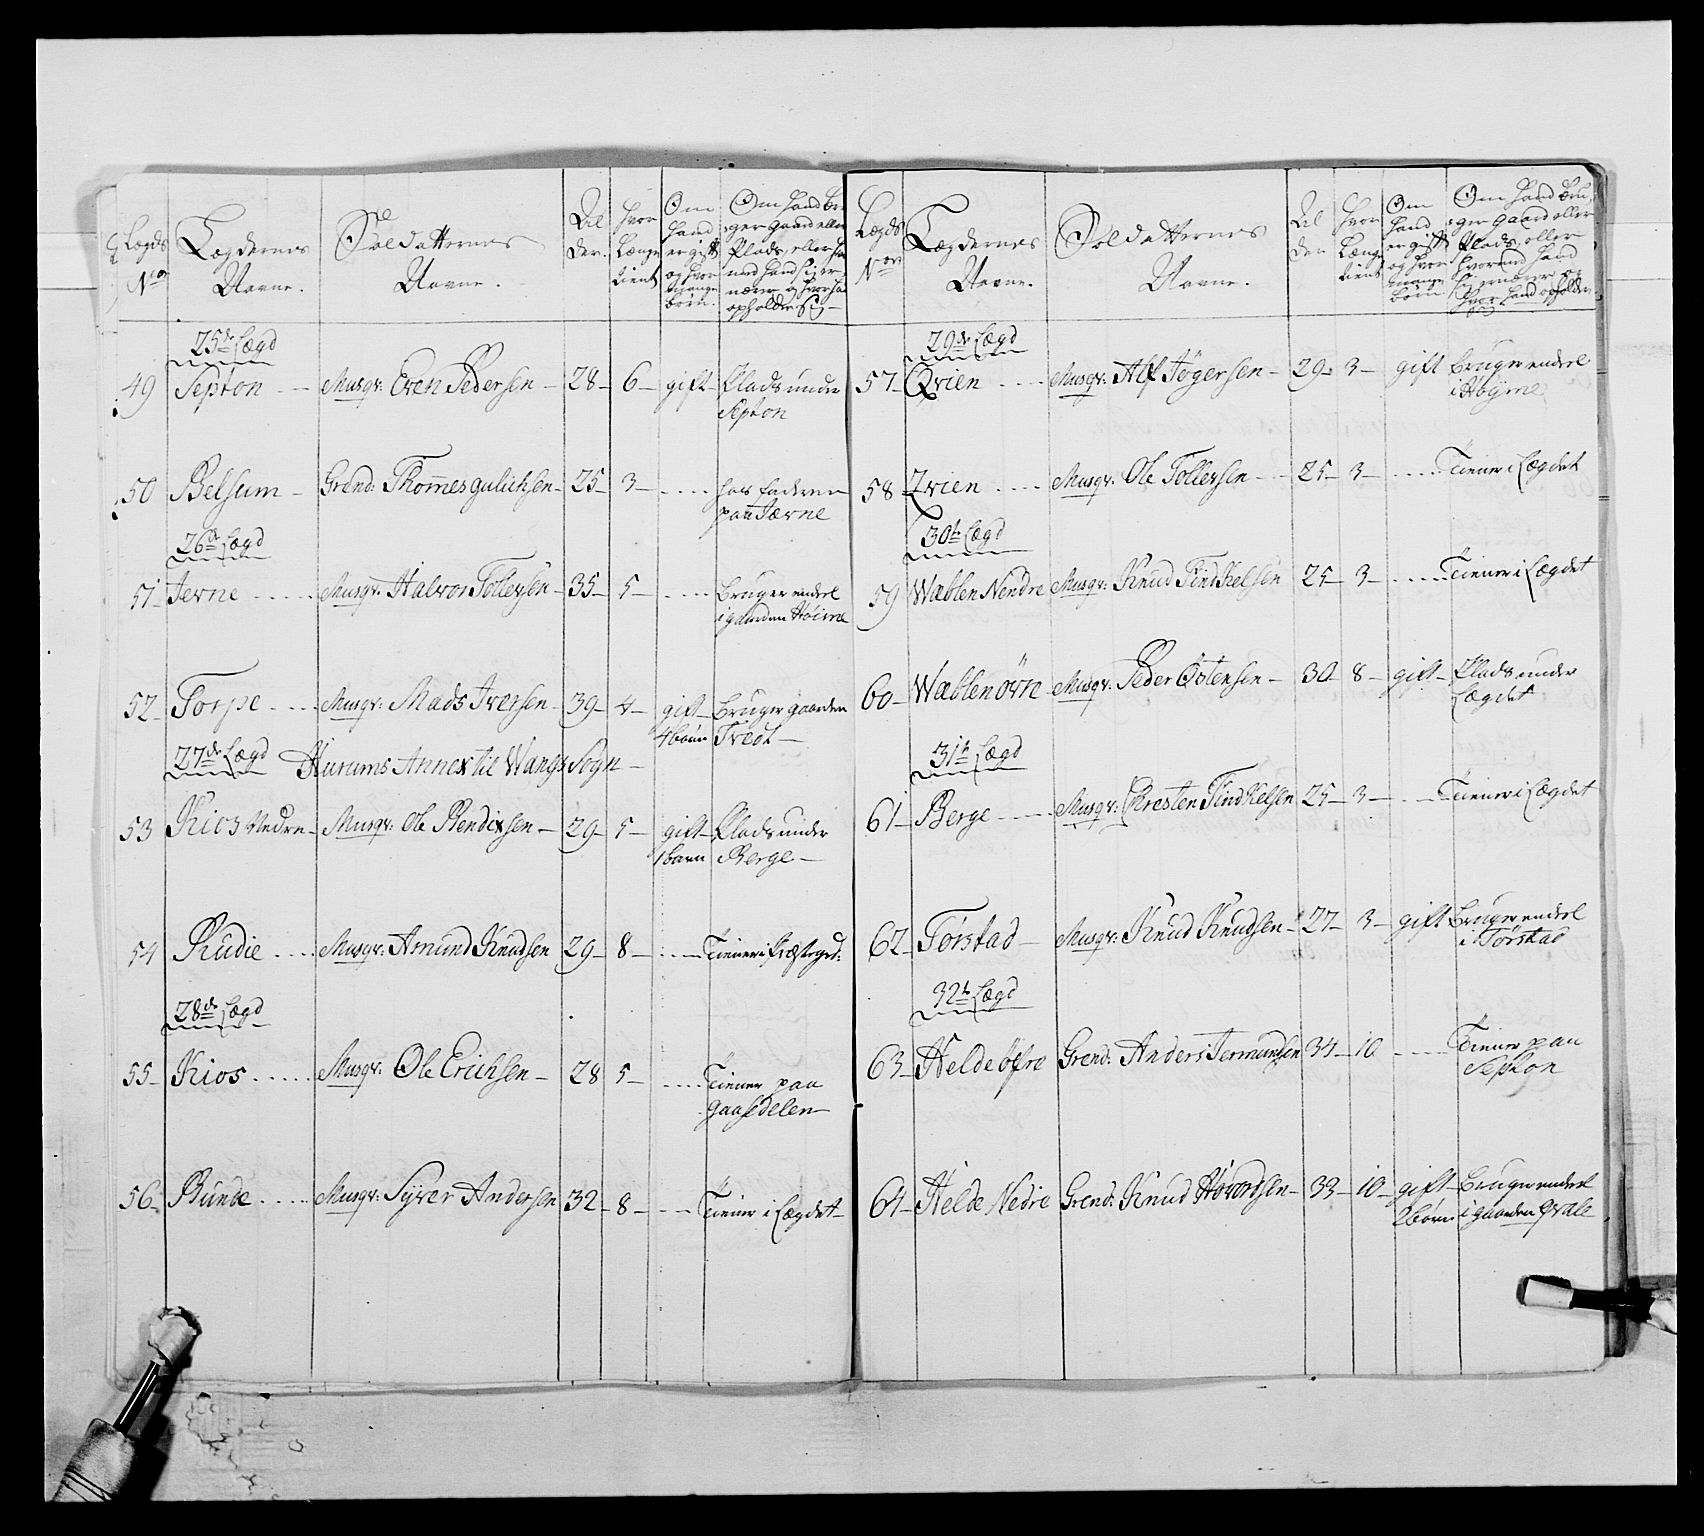 Lægds No
Lægdernes Navne.
Soldatternes Navne.
Alder.
Hvor Længe tient
Om Hand er gift og hvor mange børn.
Om Hand bruger gaard eller Plads, eller hvormed Hand sig ernærer og hvor Hand opholder sig
25de Lægd
49 Septon - - Musqr: Even Pedersen - 28 - 6 - gift - Plads under
Septon
50 Belsum - Grend: Thommes gulichsen - 25 - 3 - . . . . hos faderen
paa Jærne
26de Lægd
51 - Jerne . . . . . Musqr: Halvor Tollevsen - 35 - 5 - . . . . Bruger endel
i gaarden Høime
52 - Torpe . . . . Musqr: Mads Iversen - 39 - 4 - gift - Bruger gaarden
4 børn Tvedt -
27de Lægd Hurums Annex til Wangs Sogn -
53 Kios Nedre - Musqr: Ole Bendixsen - 29 - 5 - gift - Plads under
1 barn Berge -
54 Rudie . . . . Musqr: Amund Knudsen 29 - 8 - . . . . Tiener i Præstegd:
28de Lægd
55 - Kios . . . . . Musqr: Ole Erichsen - 28 5 - . . . . Tiener paa
gaasedelen -
56 - Runde . . . . Musqr: Syver Andersen 32 - 8 - . . . Tiener i Lægdet -
Lægds Nor
Lægdernes Navne.
Soldatternes Navne.
Alder
Hvor Længe tient
Om Hand er gift og hvor mange børn.
Om Hand bruger gaard eller Plads, eller hvormed Hand sig ernærer og hvor Hand opholder sig
29de Lægd
57 - Qvien . . . . Musqr: Alf Jøgersen - 29 - 3 - gift Bruger endel
i Høyme
58 - Qvien . . . . Musqr: Ole Tollevsen - 25 - 3 - . . . . . Tiener i Lægdet
30te Lægd
59 Wæblen Nendre Musqr: Knud Findkelsen 25 - 3 - . . . . . Tiener i Lægdet
60 - Wæblen øvn Musqr: Peder Østensen - 30 - 8 - gift - Plads under
Lægdet
31te Lægd
61 - Berge . . . . Musqr: Christen Findkelsen 25 - 3 - . . . . Tiener i Lægdet
62 - Torstad - Musqr: Knud Knudsen - 27 - 3 - gift Bruger endel
i Torstad
32te Lægd
63 - Helde øfre Grend: Anders Jermundsen 34 - 10 . . . . Tiener paa
Septon
64 - Helde Nedre Grend: Knud Hovordsen - 33 - 10 - gift - Bruger endel
2 børn i gaarden Qvale